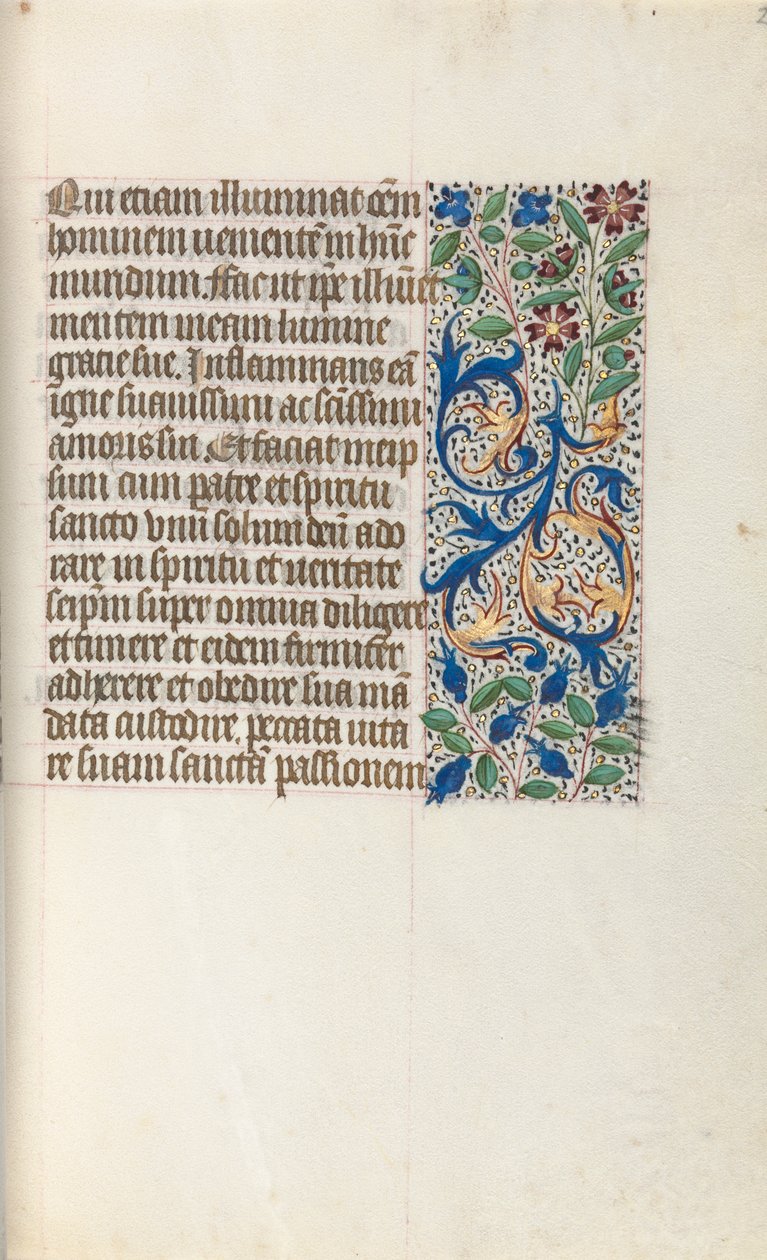 2
Qui etiam illuminat oēm
hominem uenientē in hūc
mundum. ffac ut ip̄e illūīet
mentem meam lumine
gratie sue. Inflammans eā
igne suauissimi ac scīssimi
amoris sui. Et faciat me ip
sum cum patre et spiritu
sancto vnū solum deū ado
rare in spiritu et ueritate
seip̄m super omnia diligere
et timere et eidem firmiter
adherere et obedire sua mā
data custodire, peccata uita
re suam sanctā passionem